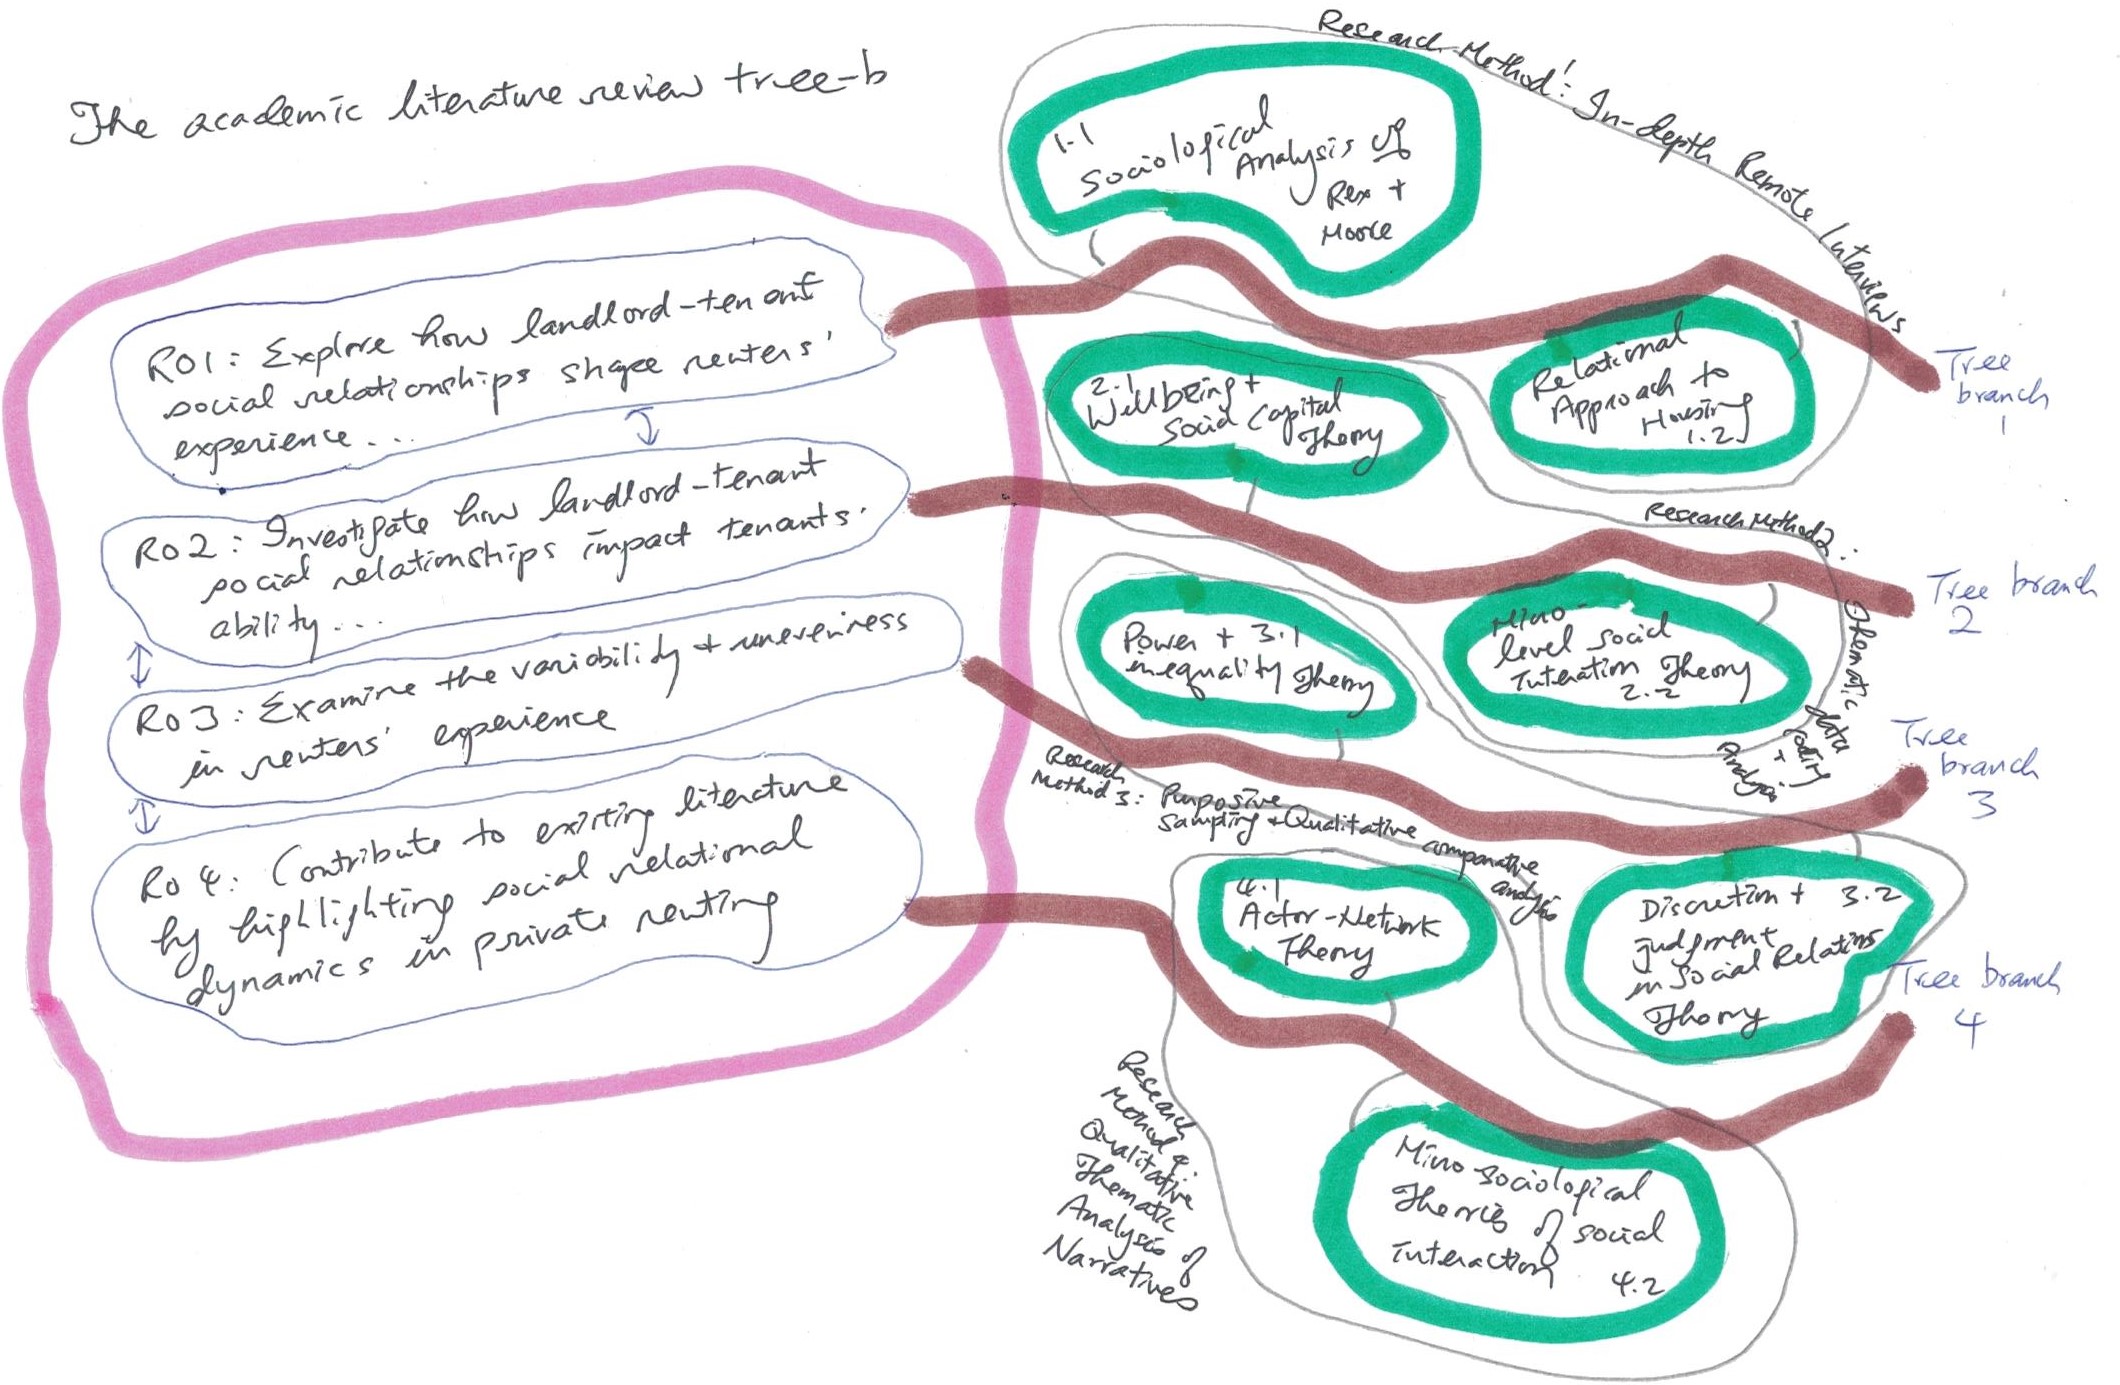 The academic literature review tree-b
RO1: Explore how landlord-tenant
social relationships shape renters'
experience....
RO2: Investigate how landlord-tenant
social relationships impact tenants'
ability....
RO3: Examine the variability + unevenness
in renters' experience
RO4: Contribute to existing literature
by highlighting social relational
dynamics in private renting
Research Method 1: In-depth Remote Interviews
1.1
Sociological
Analysis of
Rex +
Moore
Relational
Approach to
Housing
1.2
Tree
branch
1
2.1
Wellbeing +
Social Capital
Theory
Research Method 2:
Thematic
data
coding
+
Analysis
Micro-
level social
Interation Theory
2.2
Tree branch
2
Power + 3.1
inequality Theory
Research
Method 3: Purposive
Sampting + Qualitative
comparative
analysis
Discretion + 3.2
judgment
in Social Relations
Theory
Tree
branch
3
4.1
Actor-Network
Theory
Tree branch
4
Research
Method 4:
Qualitative
Thematic
Analysis of
Narratives
Micro sociological
Theories of social
interaction 4.2